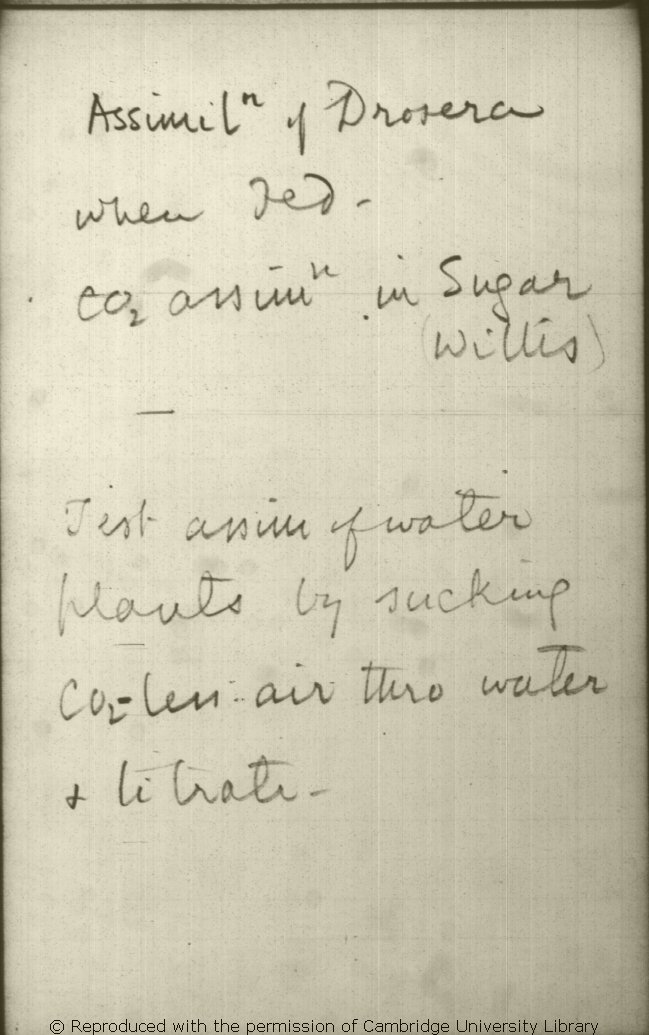 Assimilⁿ of Drosera
when fed -
CO₂ assimⁿ in Sugar
(Willis)
—
Test assim of water
plants by sucking
CO₂-less air thro water
& titrate -
© Reproduced with the permission of Cambridge University Library